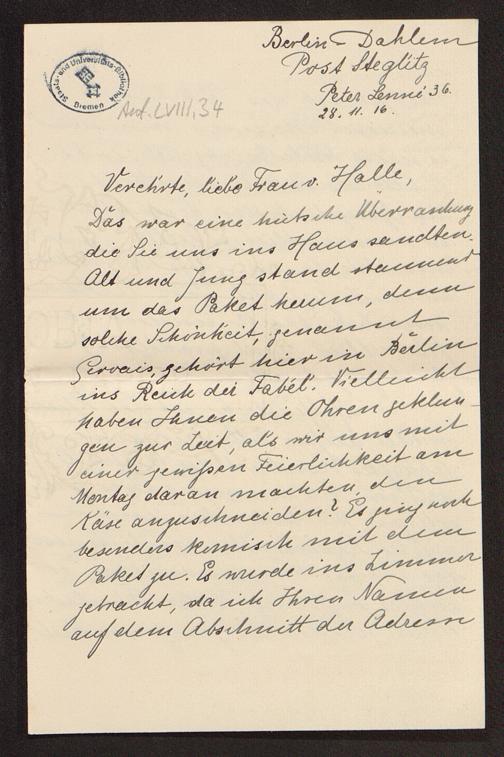 Berlin-Dahlem
Post Steglitz
Peter Lenné 36.
28. 11. 16.
Staats- und Universitäts-Bibliothek
Bremen
Aut. LVIII, 34
Verehrte, liebe Frau v. Halle,
Das war eine hübsche Überraschung
die Sie uns ins Haus sandten.
Alt und Jung stand staunend
um das Paket herum, denn
solche Schönheit, genannt
Gervais, gehört hier in Berlin
ins Reich der Fabel. Vielleicht
haben Ihnen die Ohren geklun-
gen zur Zeit, als wir uns mit
einer gewissen Feierlichkeit am
Montag daran machten, den
Käse anzuschneiden? Es ging noch
besonders komisch mit dem
Paket zu. Es wurde ins Zimmer
gebracht, da ich Ihren Namen
auf dem Abschnitt der Adresse